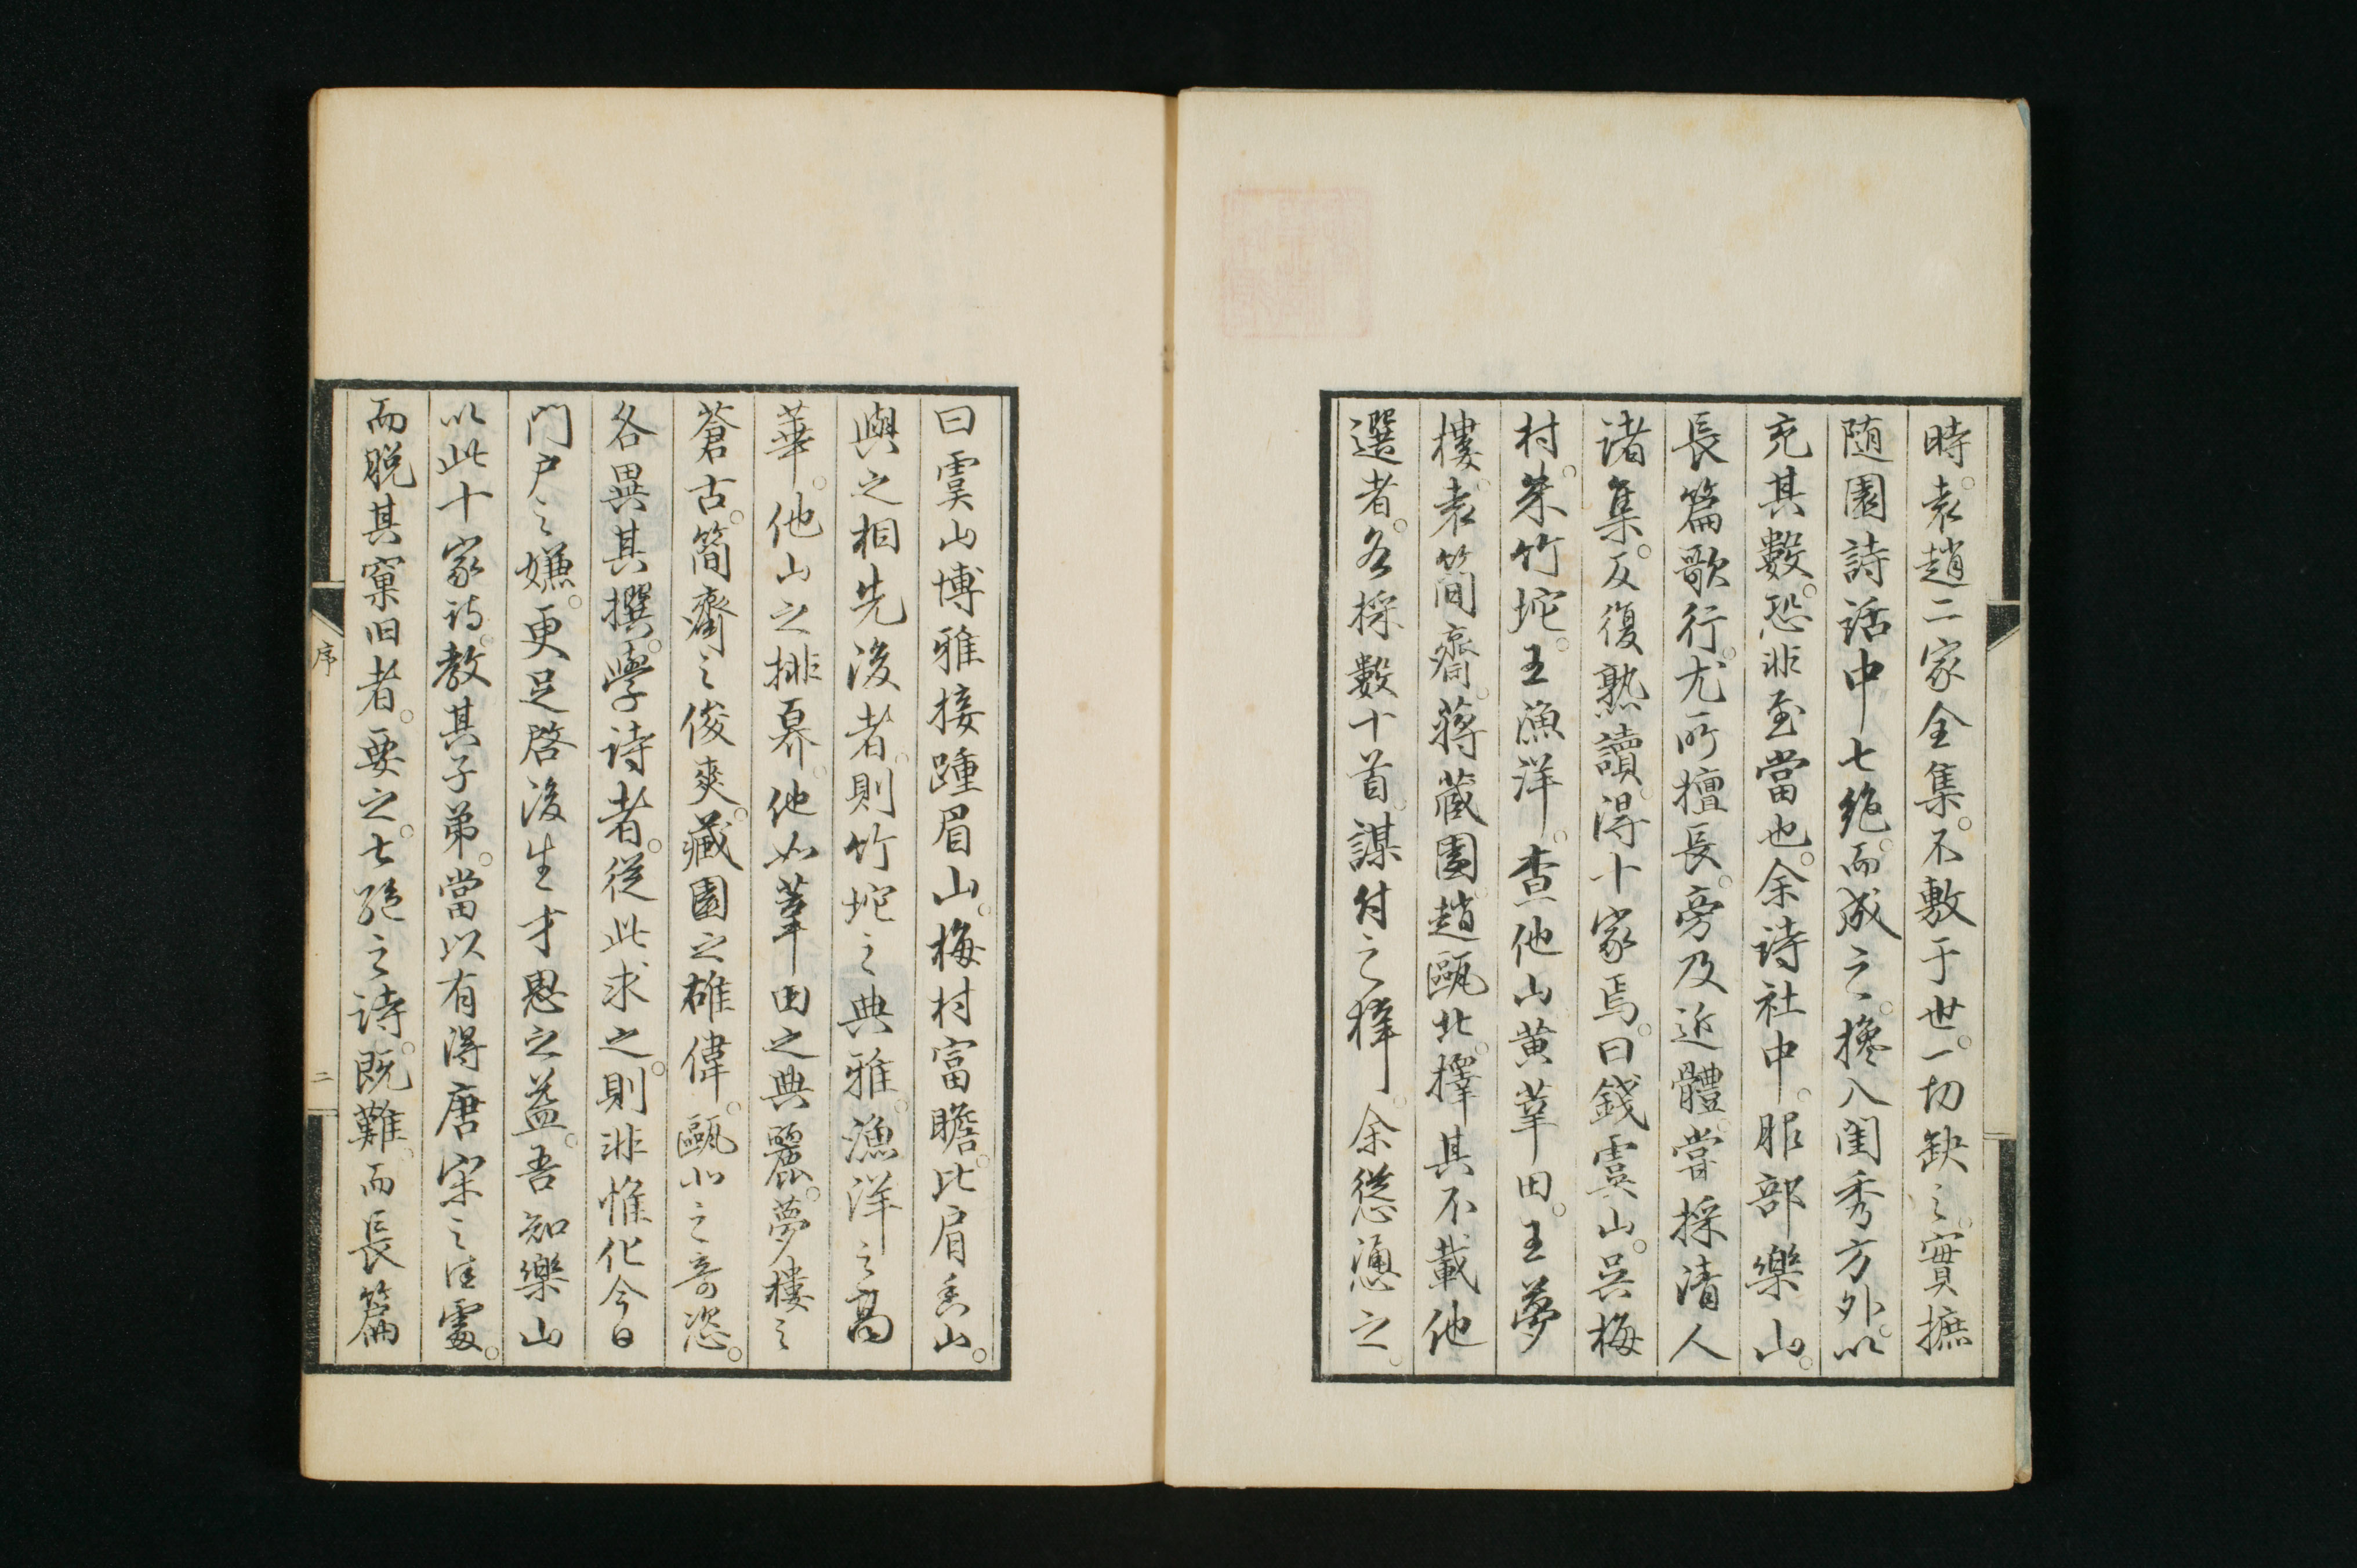 時。袁趙二家全集。不敷于世。一切缺之。實摭
随園詩話中七絶。而成之。攙入閨秀方外。以
充其數。恐非至當也。余詩社中。服部樂山。
長篇歌行。尤所擅長。旁及近體。嘗採清人
諸集。反復熟讀。得十家焉。曰錢虞山。吴梅
村。朱竹坨。王漁洋。查他山黄莘田。王夢
樓。袁簡齋。蔣藏園。趙甌北。擇其不載他
選者。各採數十首。謀付之梓。余慫慂之。
曰虞山博雅接踵眉山。梅村富瞻。比肩香山。
與之相先後者。則竹坨之典雅。漁洋之高
華。他山之排奡。他如莘田之典麗。夢樓之
蒼古。簡齋之俊爽。藏園之雄偉。甌北之奇恣。
各異其撰。學詩者。從此求之。則非惟化今日
門戸之嫌。更足啓後生才思之益。吾知樂山
以此十家詩。教其子弟。當以有得唐宋之佳處。
而脱其窠旧者。要之。七絶之詩。既難。而長篇
序
二